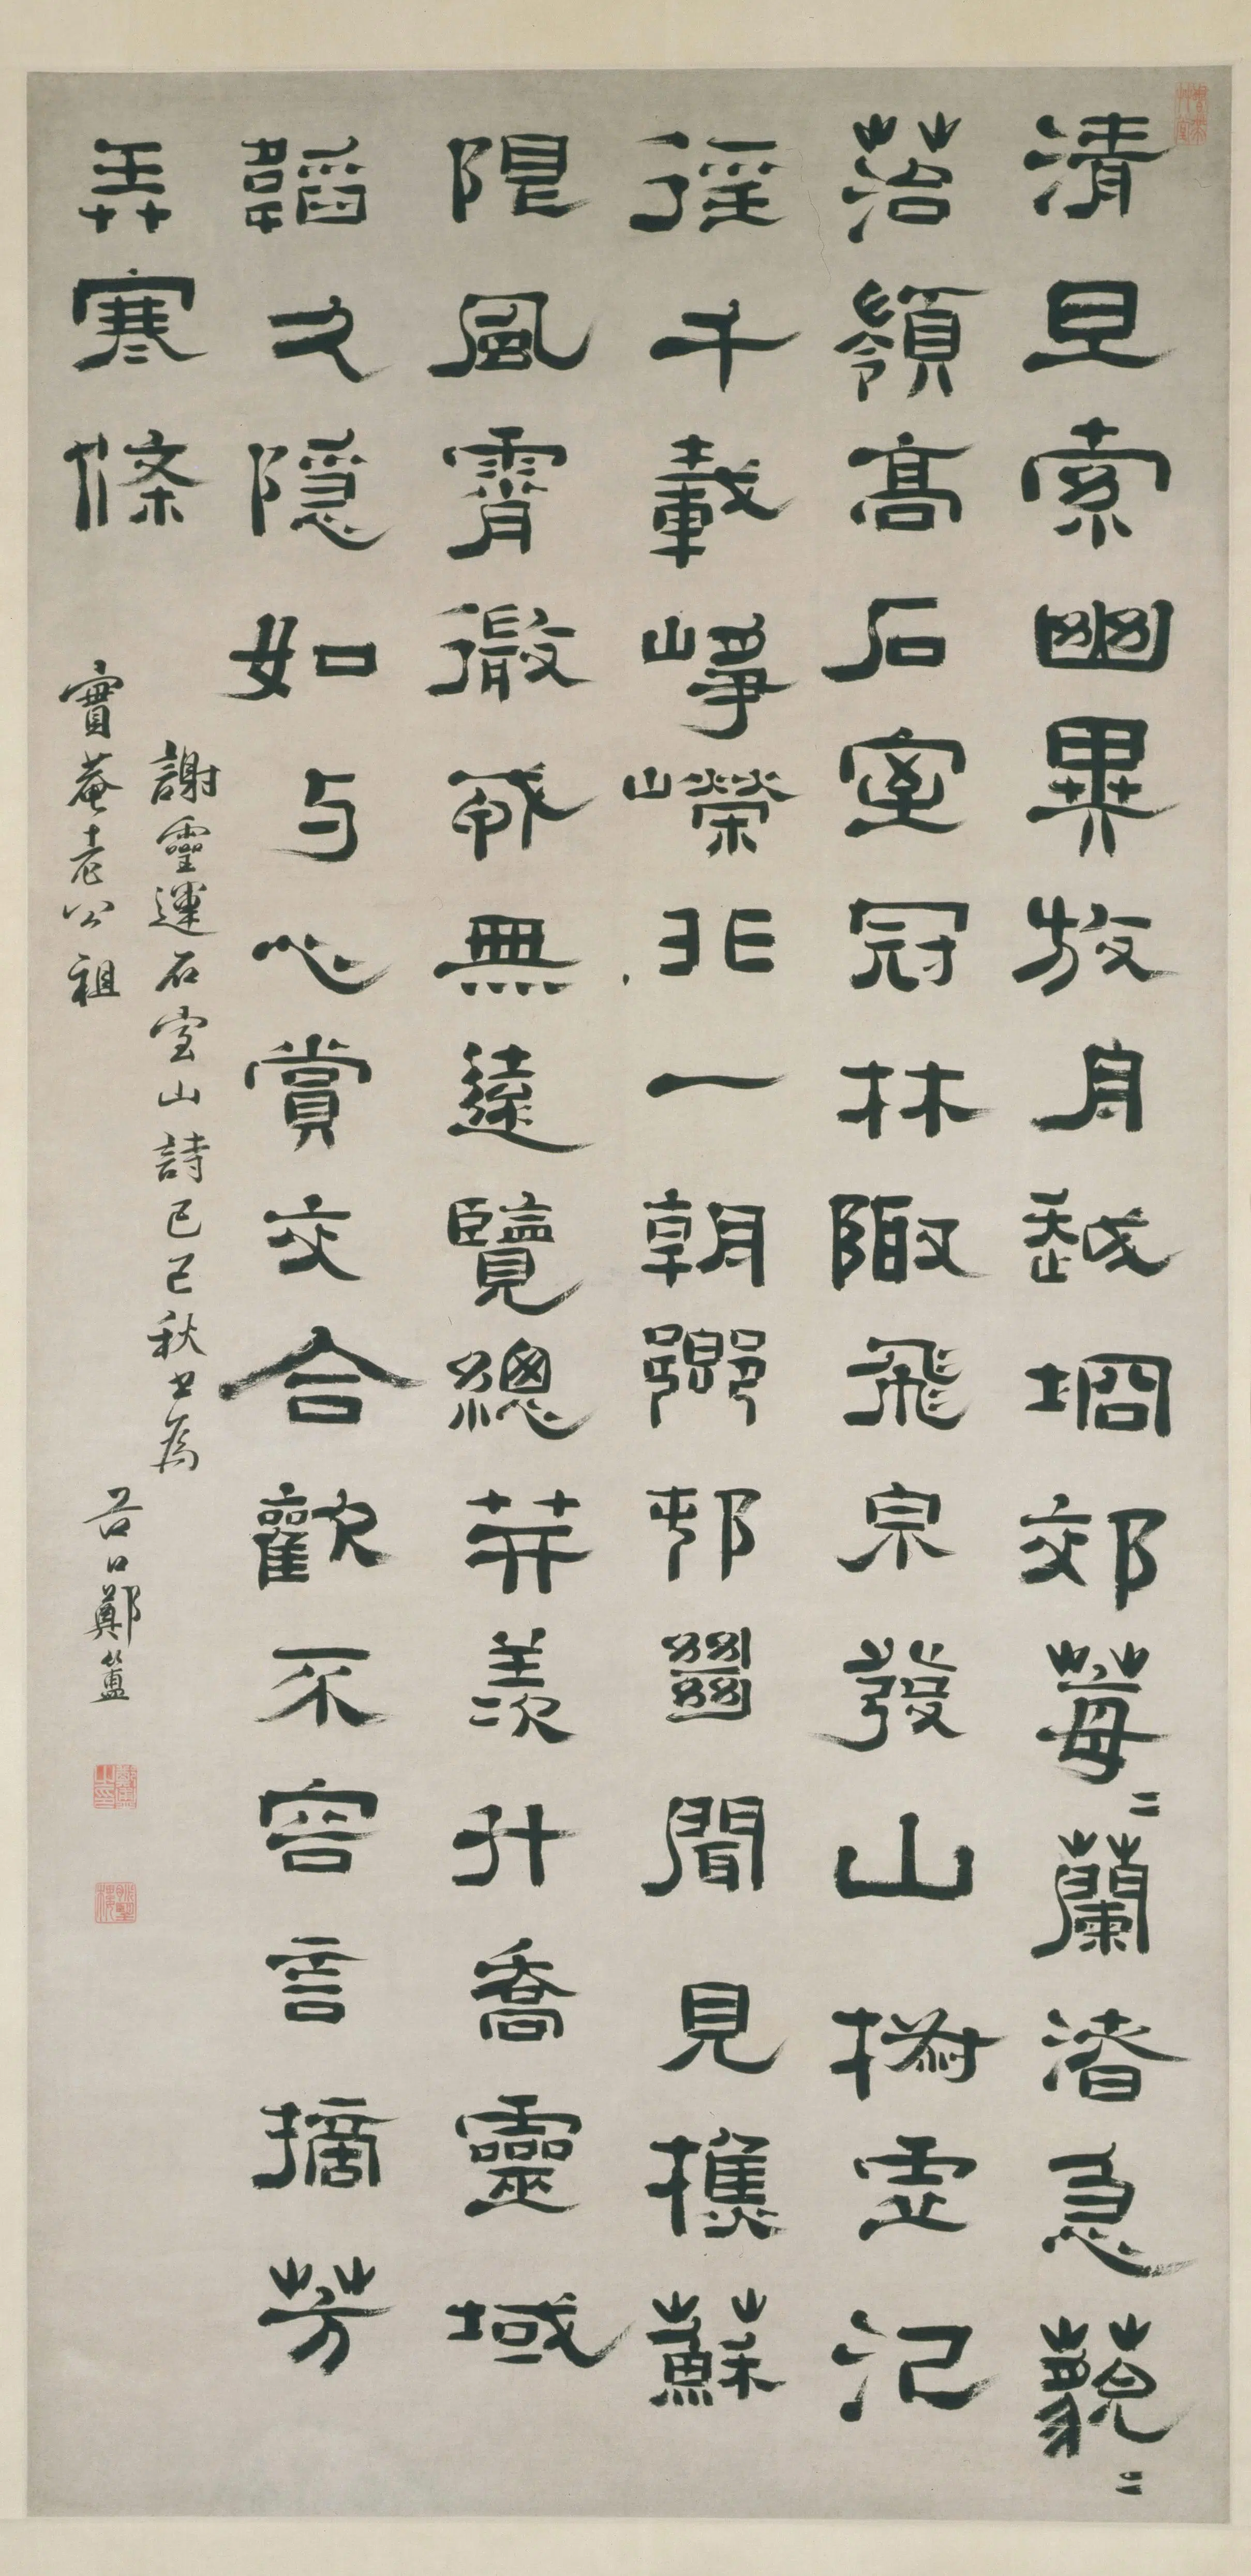 清旦索幽異放舟越坰郊莓〻蘭渚急藐〻
菭嶺高石室冠林陬飛泉發山椒虛氾
徑千載崢嶸非一朝鄉邨絕聞見樵蘇
限風霄微戎無遠覽總笄羨升喬靈域
韜久隱如与心賞交合歡不容言摘芳
弄寒條
謝靈運石室山詩己巳秋書為
實菴老公祖
谷口鄭簠